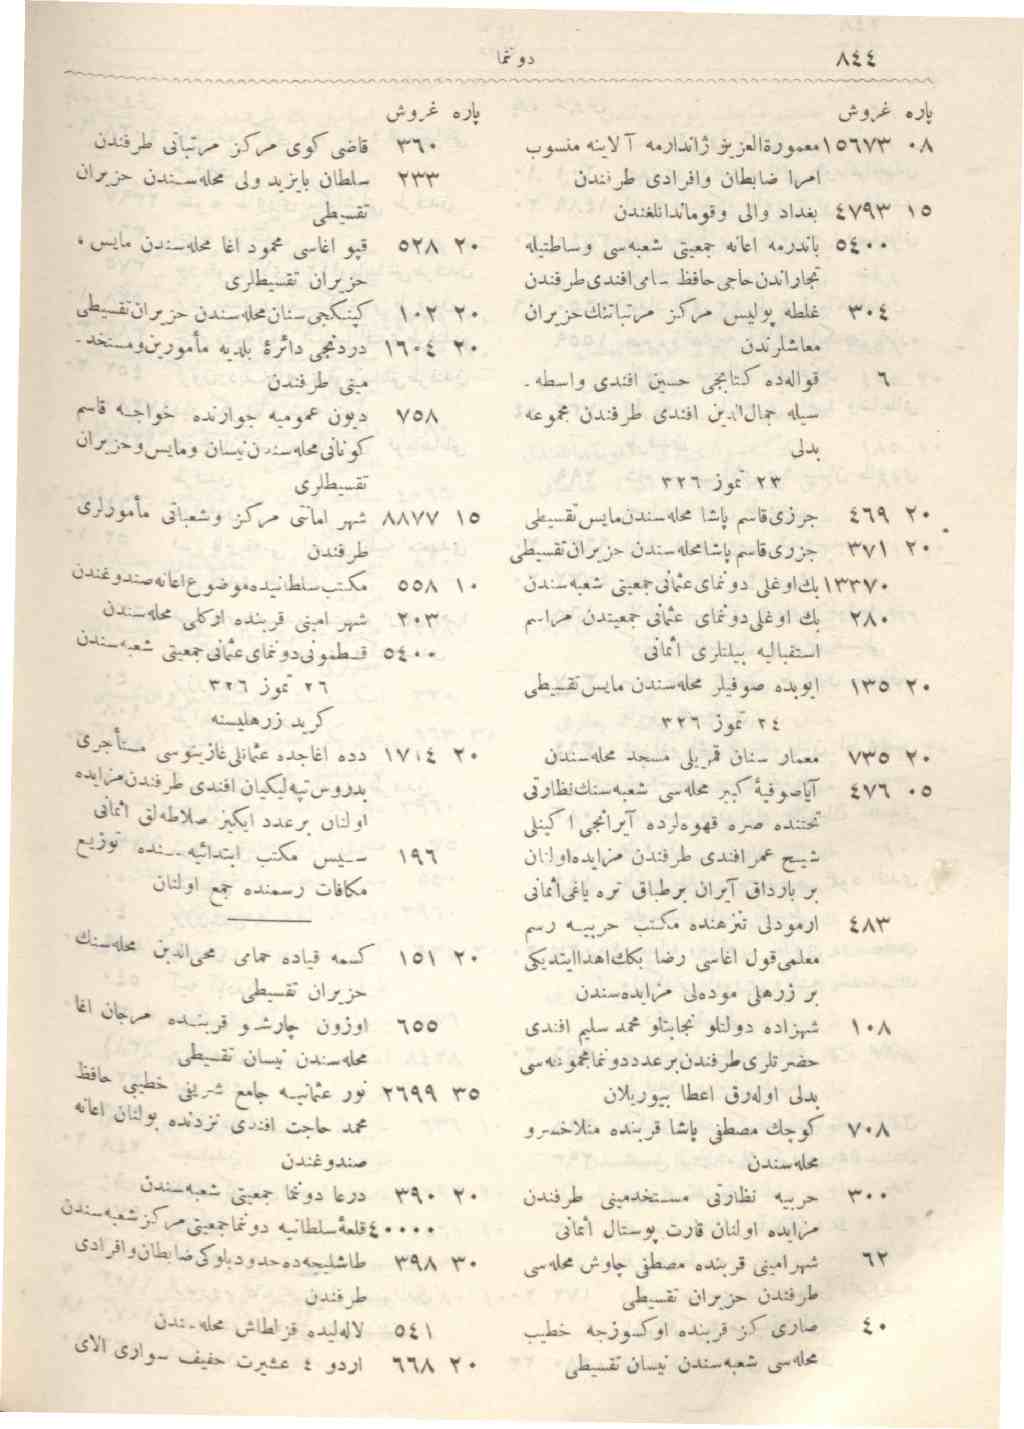 ٨٤٤
دونما
پاره غروش
٠٨ ١٥٦٧٣ معمورةالعزيز ژاندارمه آلاينه منسوب
امرا ضابطان وافرادى طرفندن
١٥ ٤٧٩٣ بغداد والى وقوماندانلغندن
٥٤٠٠ باندرمه اعانه جمعيتى شعبه‌سى وساطتيله
تجاراندن حاجى حافظ سامى افندى طرفندن
٣٠٤ غلطه پوليس مركز مرتباتنك حزيران
معاشلرندن
٦ قواله‌ده كتابجى حسين افندى واسطه‌ـ
سيله جمال‌الدين افندى طرفندن مجموعه
بدلى
٢٣ تموز ٣٢٦
٢٠ ٤٦٩ جزرى قاسم پاشا محله‌سندن مايس تقسيطى
٢٠ ٣٧١ جزرى قاسم پاشا محله‌سندن حزيران تقسيطى
١٣٣٧٠ بك اوغلى دونماى عثمانى جمعيتى شعبه‌سندن
٢٨٠ بك اوغلى دونماى عثمانى جمعيتندن مراسم
استقباليه بيلتلرى اثمانى
٢٠ ١٣٥ ايوبده صوفيلر محله‌سندن مايس تقسيطى
٢٤ تموز ٣٢٦
٢٠ ٧٣٥ معمار سنان قمريلى مسجد محله‌سندن
٠٥ ٤٧٦ آياصوفيۀ كبير محله‌سى شعبه‌سنك نظارتى
تحتنده صره قهوه‌لرده آيرانجى اكينلى
شيخ عمر افندى طرفندن مزايده اولنان
بر بارداق آيران بر طباق تره ياغى اثمانى
٤٨٣ ارمودلى تنزهنده مكتب حربيه رسم
معلمى قول اغاسى رضا بكك اهدا ايتديكى
بر زرهلى موده‌لى مزايده‌سندن
١٠٨ شهزاده دولتلو نجابتلو محمد سليم افندى
حضرتلرى طرفندن بر عدد دونما مجموعه‌سى
بدلى اوله‌رق اعطا بيوريلان
٧٠٨ كوچك مصطفى پاشا قربنده منلاخسرو
محله‌سندن
٣٠٠ حربيه نظارتى مستخدمينى طرفندن
مزايده اولنان قارت پوستال اثمانى
٦٢ شهرامينى قربنده مصطفى چاوش محله‌سى
طرفندن حزيران تقسيطى
٤٠ صارى كز قربنده اوكسوزجه خطيب
محله‌سى شعبه‌سندن نيسان تقسيطى
پاره غروش
٣٦٠ قاضى كوى مركز مرتباتى طرفندن
٢٣٣ سلطان بايزيد ولى محله‌سندن حزيران
تقسيطى
٢٠ ٥٢٨ قپو اغاسى محمود اغا محله‌سندن مايس و
حزيران تقسيطلرى
٢٠ ١٠٢ سنان محله‌سندن حزيران تقسيطى
٢٠ ١٦٠٤ دردنجى دائرۀ بلديه مأمورين ومستخدـ
مينى طرفندن
٧٥٨ ديون عموميه جوارنده خواجه قاسم
كونانى محله‌سندن نيسان ومايس وحزيران
تقسيطلرى
١٥ ٨٨٧٧ شهر امانتى مركز وشعباتى مأمورلرى
طرفندن
١٠ ٥٥٨ مكتب سلطانيده موضوع اعانه صندوغندن
٢٠٣ شهر امينى قربنده ارکلى محله‌سندن
٥٤٠٠ قسطمونى دونماى عثمانى جمعيتى شعبه‌سندن
٢٦ تموز ٣٢٦
كريد زرهليسنه
٢٠ ١٧١٤ دده اغاجده عثمانلى غازينوسى مستأجرى
بدروس تپه‌ليكيان افندى طرفندن مزايده
اولنان بر عدد ايكيز صلاطه‌لق اثمانى
١٩٦ مكتب ابتدائيه‌سنده توزيع
مكافات رسمنده جمع اولنان
٢٠ ١٥١ كسمه قياده حمامى محيى‌الدين محله‌سنك
حزيران تقسيطى
٦٥٥ اوزون چارشو قربنده مرجان اغا
محله‌سندن نيسان تقسيطى
٣٥ ٢٦٩٩ نور عثمانيه جامع شريفى خطيبى حافظ
محمد حاجت افندى نزدنده بولنان اعانه
صندوغندن
٢٠ ٣٩٠ درعا دونما جمعيتى شعبه‌سندن
٤٠٠٠٠ قلعۀ سلطانيه دونما جمعيتى مركز شعبه‌سندن
٣٠ ٣٩٨ طاشليجه‌ده حدود بلوكى ضابطان وافرادى
طرفندن
٥٤١ لاله‌ليده قزلطاش محله‌سندن
٢٠ ٦٦٨ اردو ٤ عشيرت خفيف سوارى الاى